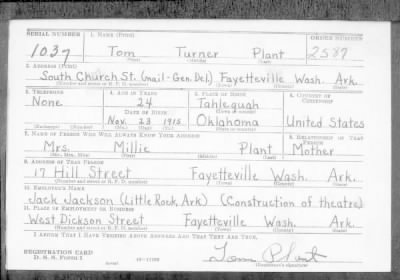 SERIAL NUMBER 1. NAME (Print) ORDER NUMBER
1037 Tom Turner Plant 2587
(First) (Middle) (Last)
2. ADDRESS (Print)
South Church St. (mail-Gen. Del.) Fayetteville Wash. Ark.
(Number and street or R. F. D. number) (Town) (County) (State)
3. TELEPHONE 4. AGE IN YEARS 5. PLACE OF BIRTH 6. COUNTRY OF CITIZENSHIP
None 24 Tahlequah
DATE OF BIRTH (Town or county)
Nov. 23 1915 Oklahoma United States
(Exchange) (Number) (Mo.) (Day) (Yr.) (State or country)
7. NAME OF PERSON WHO WILL ALWAYS KNOW YOUR ADDRESS 8. RELATIONSHIP OF THAT PERSON
Mrs. Millie Plant Mother
(Mr., Mrs., Miss) (First) (Middle) (Last)
9. ADDRESS OF THAT PERSON
17 Hill Street Fayetteville Wash. Ark.
(Number and street or R. F. D. number) (Town) (County) (State)
10. EMPLOYER'S NAME
Jack Jackson (Little Rock, Ark) (Construction of theatre)
11. PLACE OF EMPLOYMENT OR BUSINESS
West Dickson Street Fayetteville Wash. Ark.
(Number and street or R. F. D. number) (Town) (County) (State)
I AFFIRM THAT I HAVE VERIFIED ABOVE ANSWERS AND THAT THEY ARE TRUE.
REGISTRATION CARD
D. S. S. Form 1 Tom Plant
(Registrant's signature)